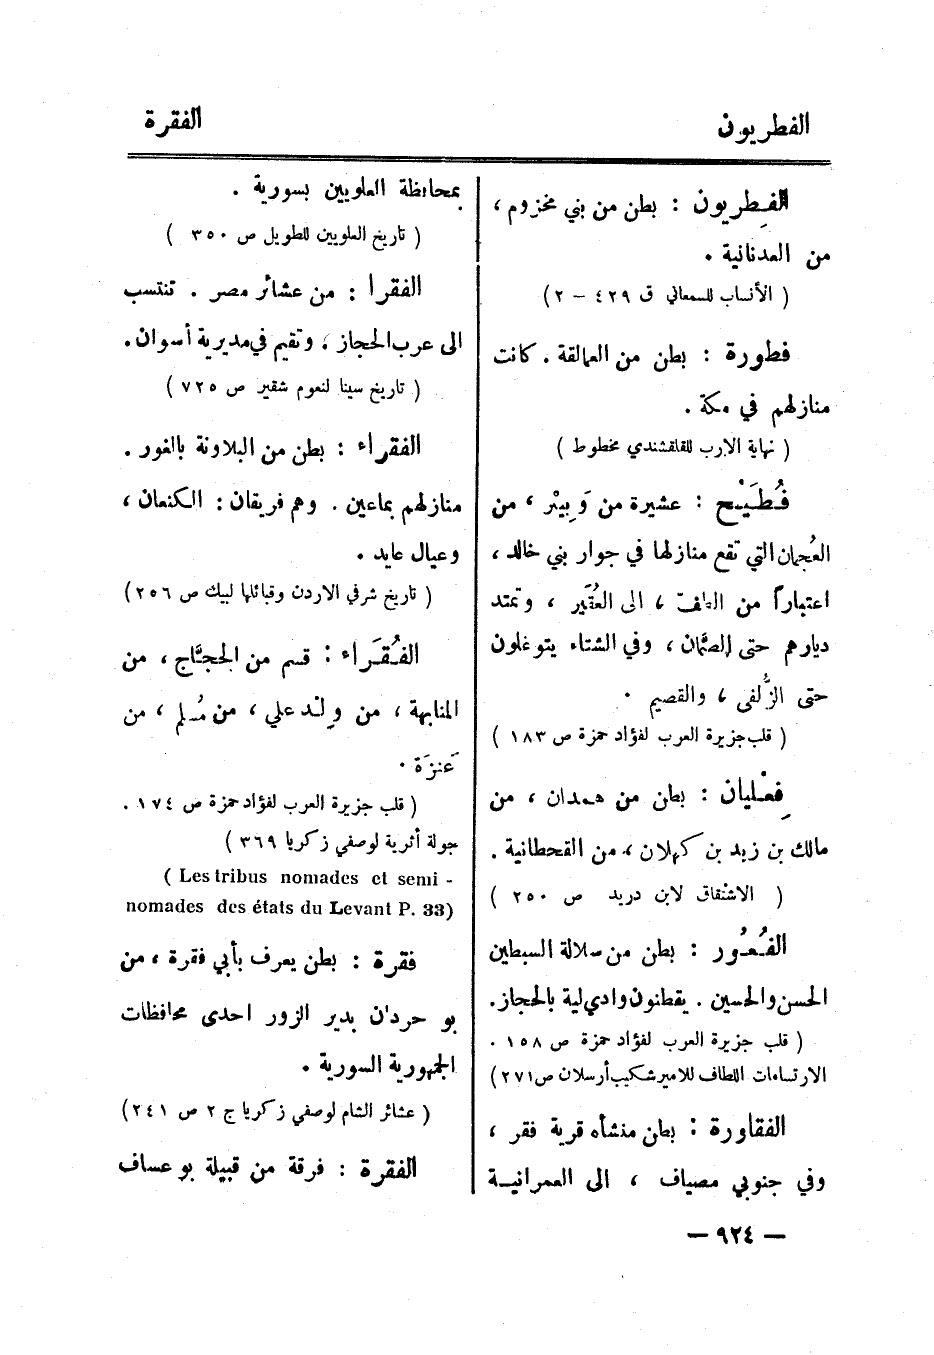 الفطريون
الفقرة
الفِطريون : بطن من بني مخزوم ،
من العدنانية .
( الأنساب للسمعاني ق ٤٢٩ – ٢ )
فطورة : بطن من العمالقة . كانت
منازلهم في مكة .
( نهاية الارب للقلقشندي مخطوط )
فُطَيْح : عشيرة من وَبِيْر ، من
العُجمان التي تقع منازلها في جوار بني خالد ،
اعتباراً من ، الى العُقَير ، وتمتد
ديارهم حتى الصَّمان ، وفي الشتاء يتوغلون
حتى الزُّلفى ، والقصيم .
( قلب جزيرة العرب لفؤاد حمزة ص ١٨٣ )
فِعْليان : بطن من همدان ، من
مالك بن زيد بن كهلان ، من القحطانية .
( الاشتقاق لابن دريد ص ٢٥٠ )
الفُعُور : بطن من سلالة السبطين
الحسن والحسين . يقطنون وادي لية بالحجاز.
( قلب جزيرة العرب لفؤاد حمزة ص ١٥٨ .
الارتسامات اللطاف للامير شكيب أرسلان ص ٢٧١)
الفقاورة : بطن منشأه قرية فقر ،
وفي جنوبي مصياف ، الى العمرانيـة
بمحافظة العلويين بسورية .
( تاريخ العلويين للطويل ص ٣٥٠ )
الفقرا : من عشائر مصر . تنتسب
الى عرب الحجاز ، وتقيم في مديرية أسوان .
( تاريخ سينا لنعوم شقير ص ٧٢٥ )
الفقراء : بطن من البلاونة بالغور .
منازلهم بماعين . وهم فريقان : الكنعان ،
وعيال عايد .
( تاريخ شرقي الاردن وقبائلها لبيك ص ٢٥٦)
الفُقَراء : قسم من الحجَّاج ، من
المنابهة ، من ولد علي ، من مُسلم ، من
عَنزَة .
( قلب جزيرة العرب لفؤاد حمزة ص ١٧٤ .
جولة أثرية لوصفي زكريا ٣٦٩ )
( Les tribus nomades et semi -
nomades des états du Levant P. 33)
فقرة : بطن يعرف بأبي فقرة ، من
بو حردان بدير الزور احدى محافظات
الجمهورية السورية .
( عشائر الشام لوصفي زكريا ج ٢ ص ٢٤١)
الفقرة : فرقة من قبيلة بو عساف
— ٩٢٤ —